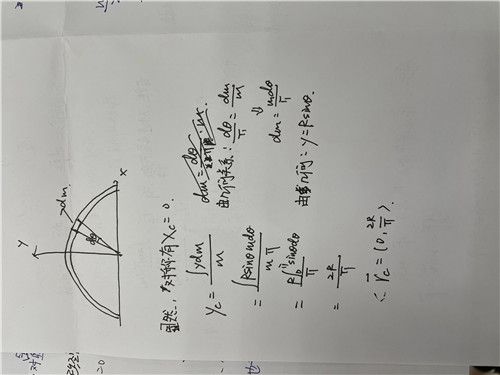 y
dm
dθ
x
显然,有对称有 Xc = 0.
yc = ∫ydm / m
= ∫Rsinθmdθ / mπ
= R∫₀^π sinθdθ / π
= 2R / π
∴ r⃗c = (0, 2R/π).
由几何关系: dθ/π = dm/m
⇓
dm = mdθ/π
由几何: y = Rsinθ.